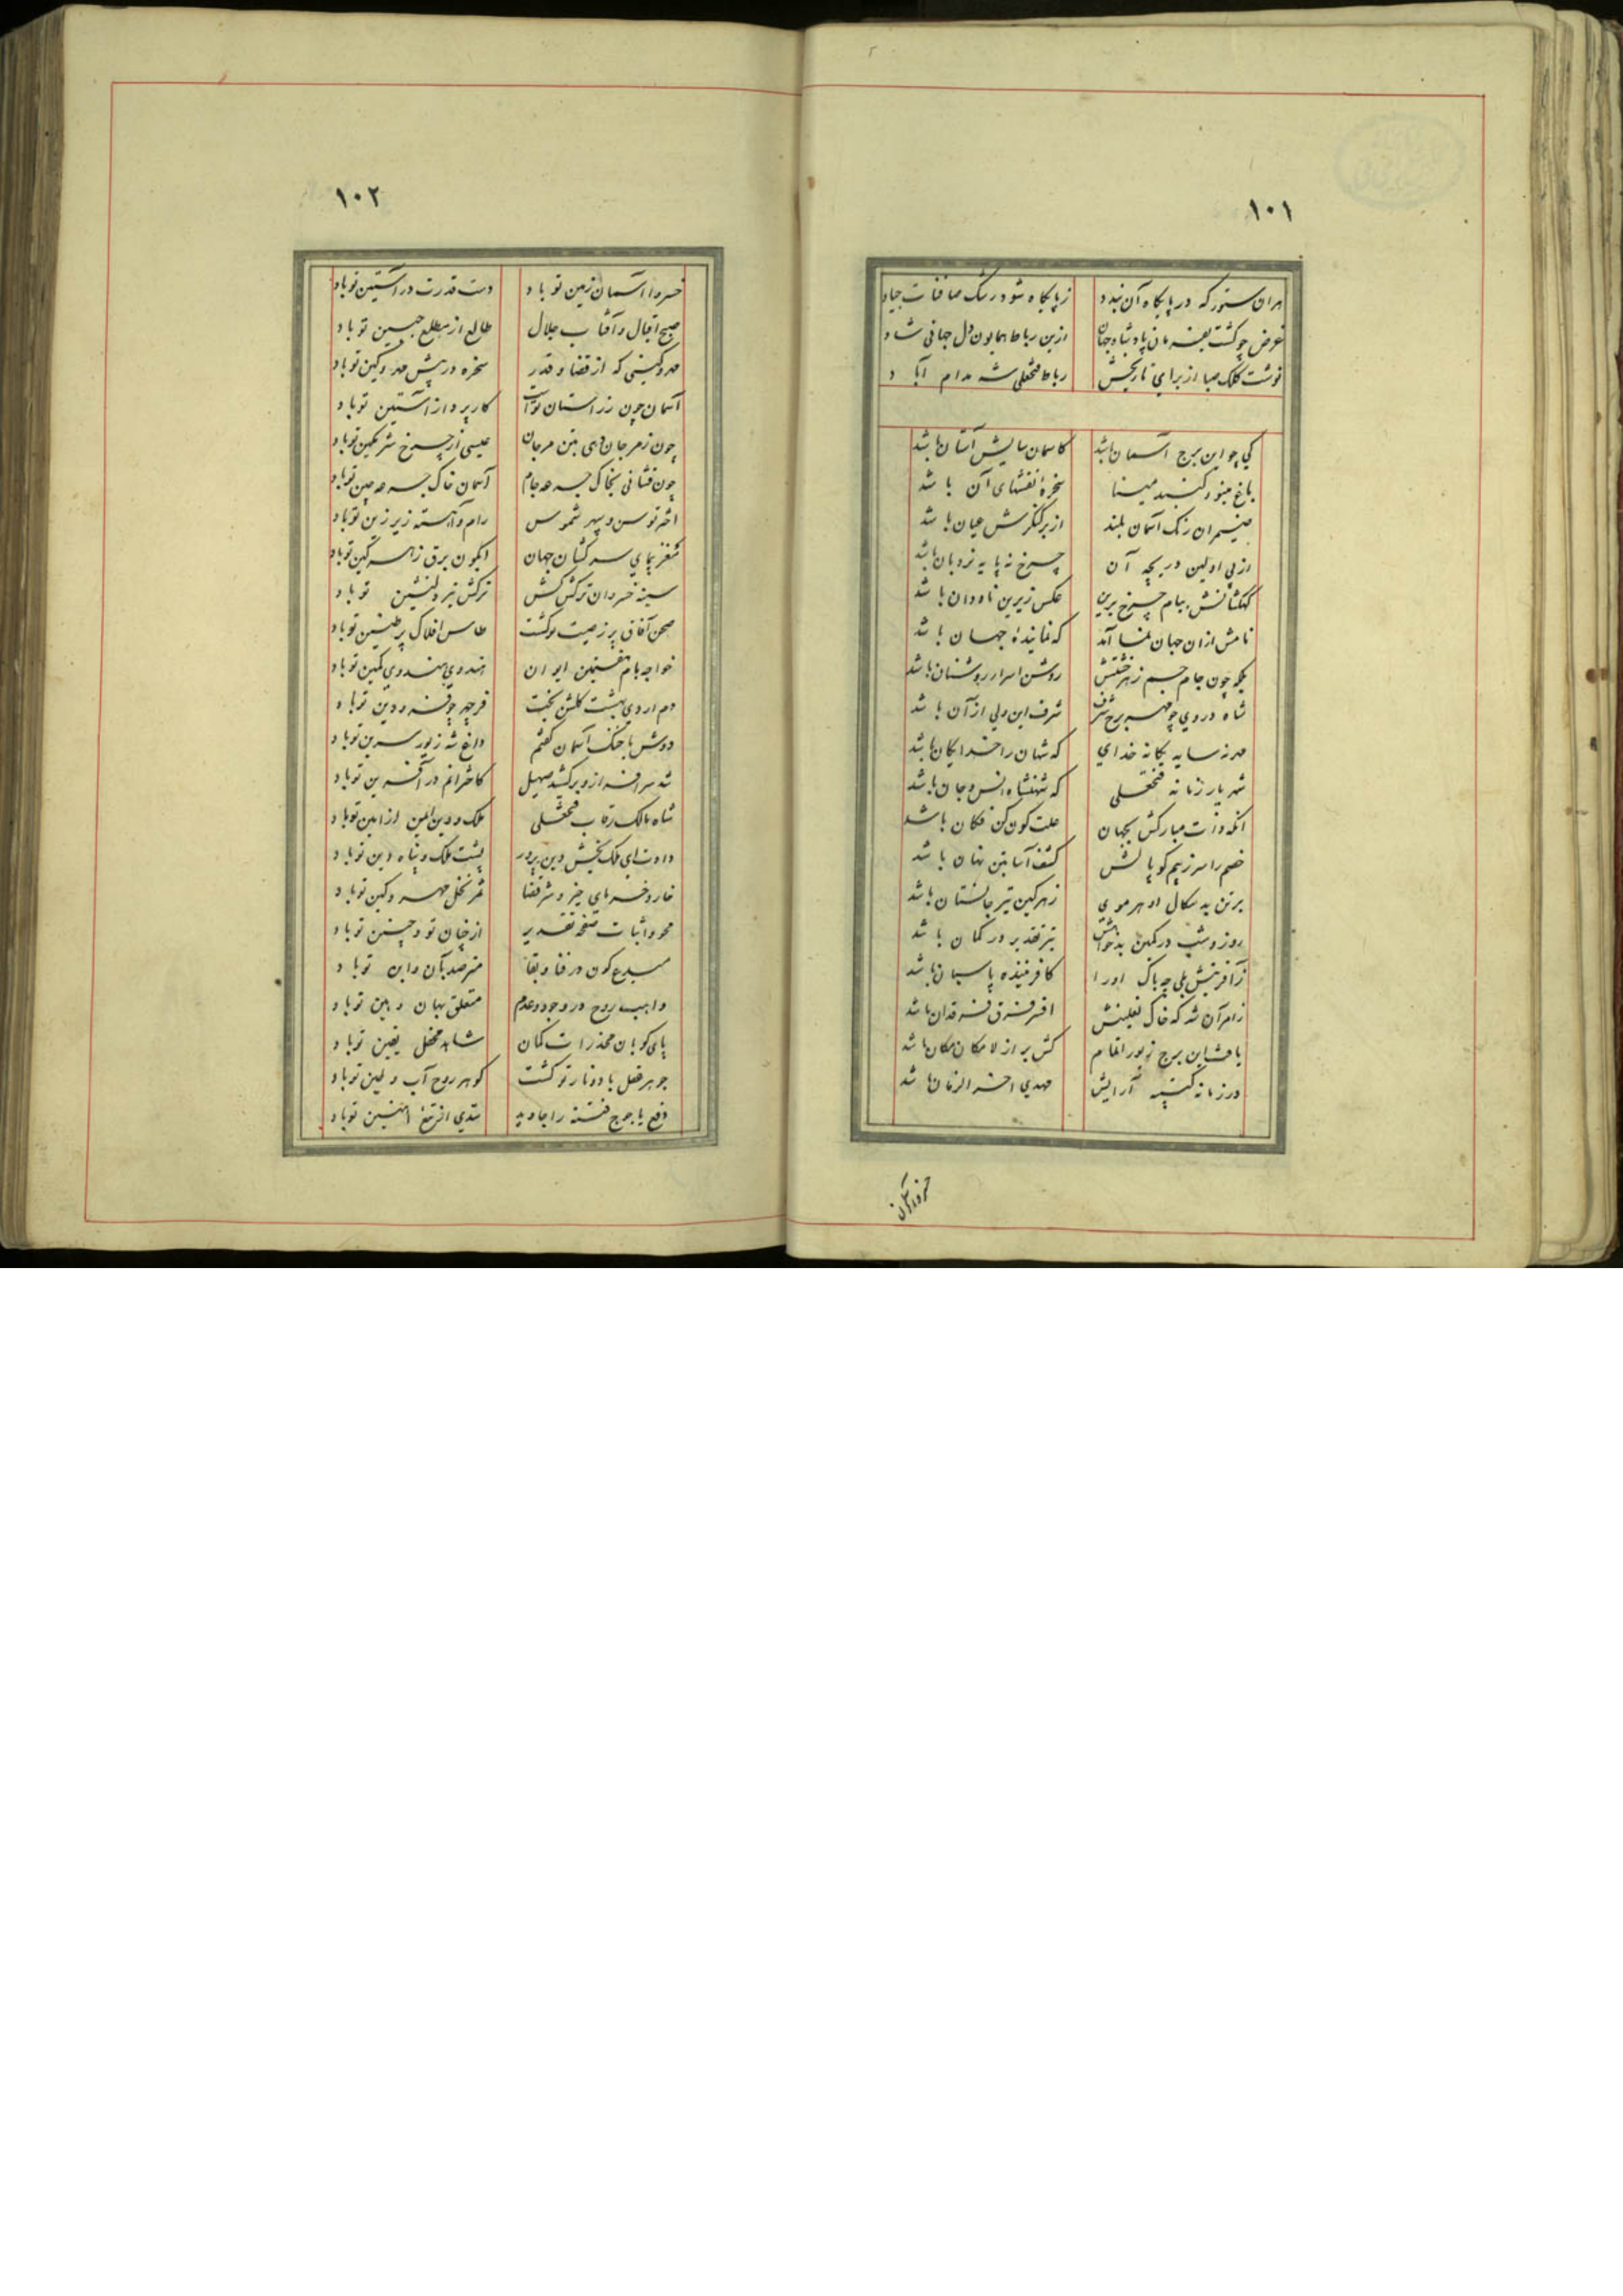 ۱۰۱
هران ستور که در پایگاه آن بندد زپایگاه شود رشک صافنات جیاد
غرض چو گشت بفرمان پادشاه جهان ازین رباط همایون دل جهانی شاد
نوشت کلک صبا از برای تاریخش رباط فتحعلی شه مدام آباد
کی چو این برج آسمان باشد کاسمان سایش آستان باشد
باغ مینو و گنبد مینا سخرهٔ نقشهای آن باشد
نیمیران رنگ آسمان بلند از بر کنگرش عیان باشد
از پی اولین دریچه آن چرخ نه پایه نردبان باشد
کهکشانش ببام چرخ برین عکس زیرین ناودان باشد
نامش ازان جهان نما آمد که نمایندهٔ جهان باشد
بلکه چون جام جم زهر خشتش روشن اسرار روشنان باشد
شاه در وی چو مهر برج شرف شرف این ولی از آن باشد
مه نه سایه یگانه خدای که شهان را خدایگان باشد
شهریار زمانه فتحعلی که شهنشاه انس و جان باشد
انکه ذات مبارکش بجهان علت کون کن فکان باشد
خصم را سر زبیم کوپالش کشف آسا بتن نهان باشد
بر تن بدسگال او هر موی زهرگین تیر جانستان باشد
روز و شب در کمین بدخواهش تیر تقدیر در کمان باشد
زآفرینش بلی چه باک اورا کافریننده پاسبان باشد
زامر آن شه که خاک نعلینش افسر فرق فرقدان باشد
یافت این برج زیور اتمام کش بر از لامکان مکان باشد
در زمانه کتیبه آرایش مهدی اخر الزمان باشد
خسروا آسمان
۱۰۲
خسروا آسمان زمین تو باد دست قدرت در آستین تو باد
صبح اقبال و آفتاب جلال طالع از مطلع جبین تو باد
مهر و کینی که از قضا و قدر سخره در پیش مهر و کین تو باد
آسمان چون زر آستان تو است کار پرداز آستین تو باد
چون زمرجان دمی بتن مرجان عیسی از چرخ شرمگین تو باد
چون فشانی بخاک جرعه جام آسمان خاک جرعه چین تو باد
اختر توسن و سپهر شموس رام و آهسته زیر زین تو باد
مغز پیمای سرکشان جهان ابگون برق زهرگین تو باد
سینه خسروان ترکش کش ترکش تیر دلنشین تو باد
صحن آفاق پر زصیت تو گشت طاس افلاک پر طنین تو باد
خواجه بام هفتمین ایوان هندوی هندوی کمین تو باد
دم اردی بهشت گلشن بخت فرخ چو فرودین تو باد
دوش با خنگ آسمان گفتم داغ شه زیور سرین تو باد
شه سرافراز و برکشید صهیل کاخترانم در آفرین تو باد
شاه مالک رقاب فتحعلی ملک و دین ایمن از امین تو باد
دادت ای ملک بخش دین پرور پشت ملک و پناه دین تو باد
خار و خرمای خیر و شر قضا ثمر نخل مهر و کین تو باد
محو و اثبات صفحه تقدیر از چنان تو و چنین تو باد
مبدع کون در فنا و بقا مترصد بآن و این تو باد
واهب روح در وجود و عدم متعلق بهان و هین تو باد
پای کوبان مخدرات گمان شاهد محفل یقین تو باد
جوهر فعل باد و نار تو گشت گوهر روح آب و طین تو باد
دفع یاجوج فتنه را جاوید سدی از تیغ اهنین تو باد